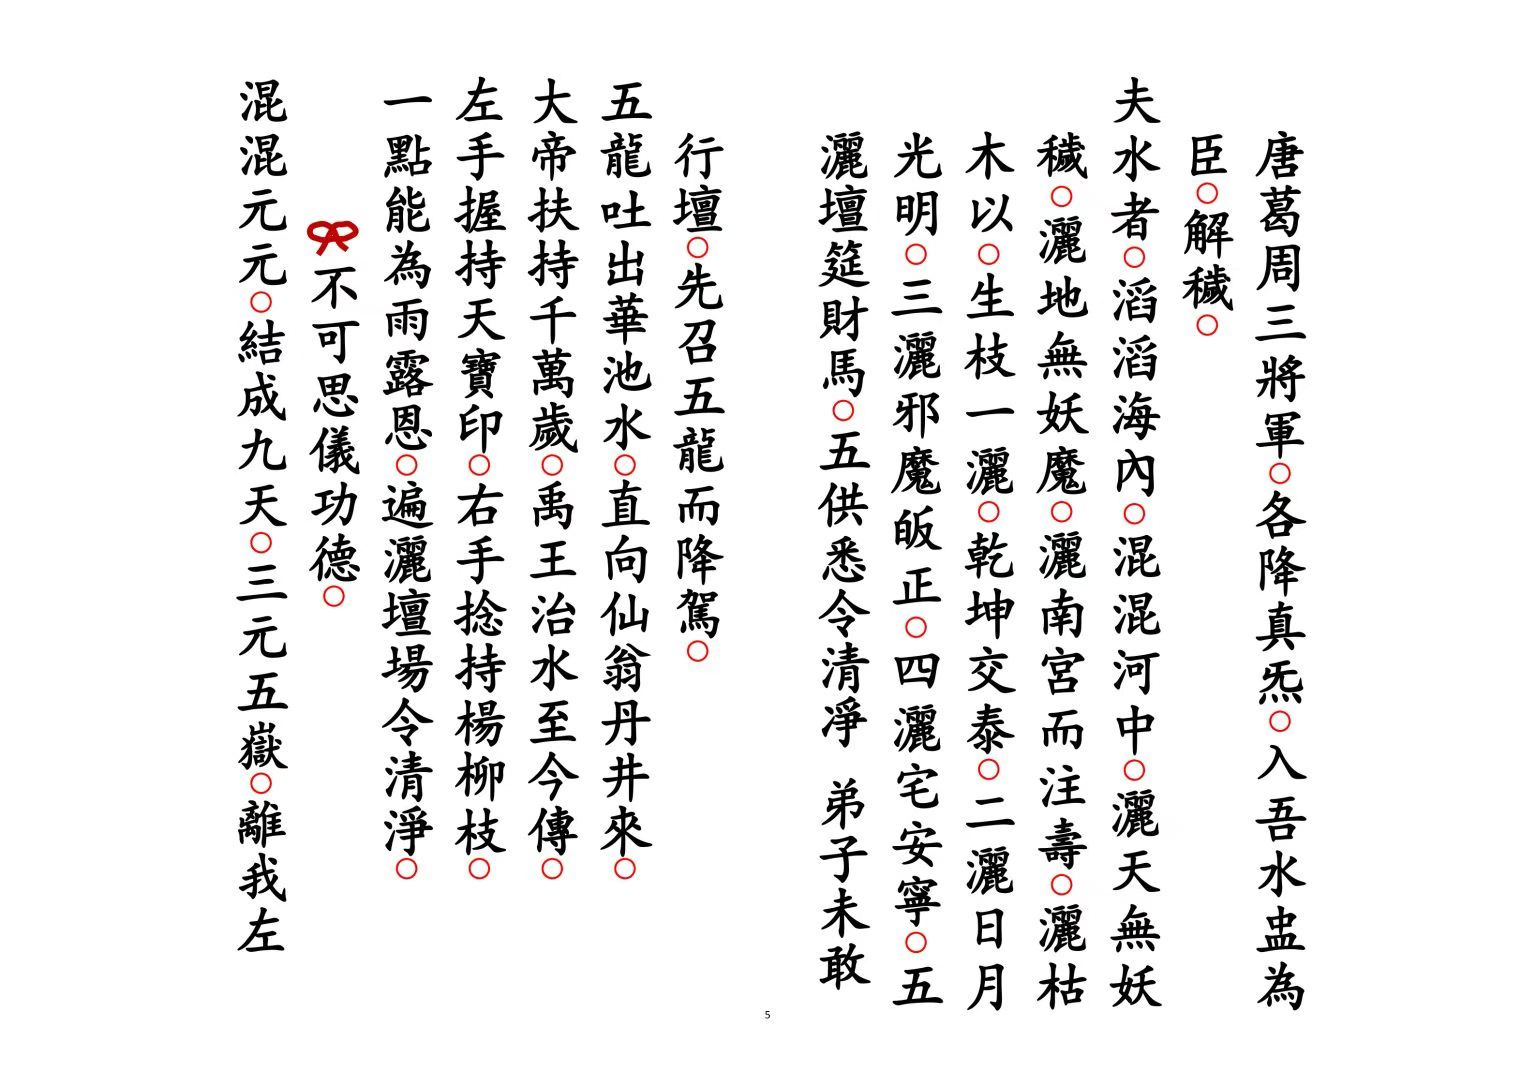 唐葛周三將軍○各降真炁○入吾水盅為
臣○解穢○
夫水者○滔滔海內○混混河中○灑天無妖
穢○灑地無妖魔○灑南宮而注壽○灑枯
木以○生枝一灑○乾坤交泰○二灑日月
光明○三灑邪魔皈正○四灑宅安寧○五
灑壇筵財馬○五供悉令清凈 弟子未敢
行壇○先召五龍而降駕○
五龍吐出華池水○直向仙翁丹井來○
大帝扶持千萬歲○禹王治水至今傳○
左手握持天寶印○右手捻持楊柳枝○
一點能為雨露恩○遍灑壇場令清淨○
不可思儀功德○
混混元元○結成九天○三元五嶽○離我左
5